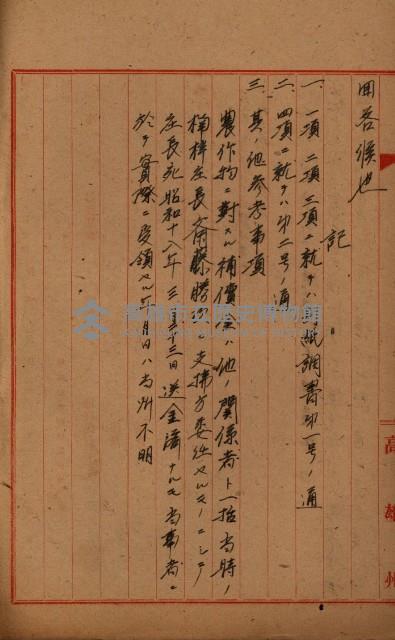 回答候也
記
一、一項 二項 三項ニ就テハ別紙調書第一号ノ通
二、四項ニ就テハ第二号ノ通
三、其ノ他参考事項
農作物ニ対スル補償集ハ他ノ関係者ト一括当時ノ
楠梓庄長斉藤勝ニ支拂方委任セルモノニシテ
庄長宛昭和十八年三月三十三日送金済ナルモ当事者ニ
於テ実際ニ受領セル年月日ハ当州不明
高雄州
高雄市立歷史博物館